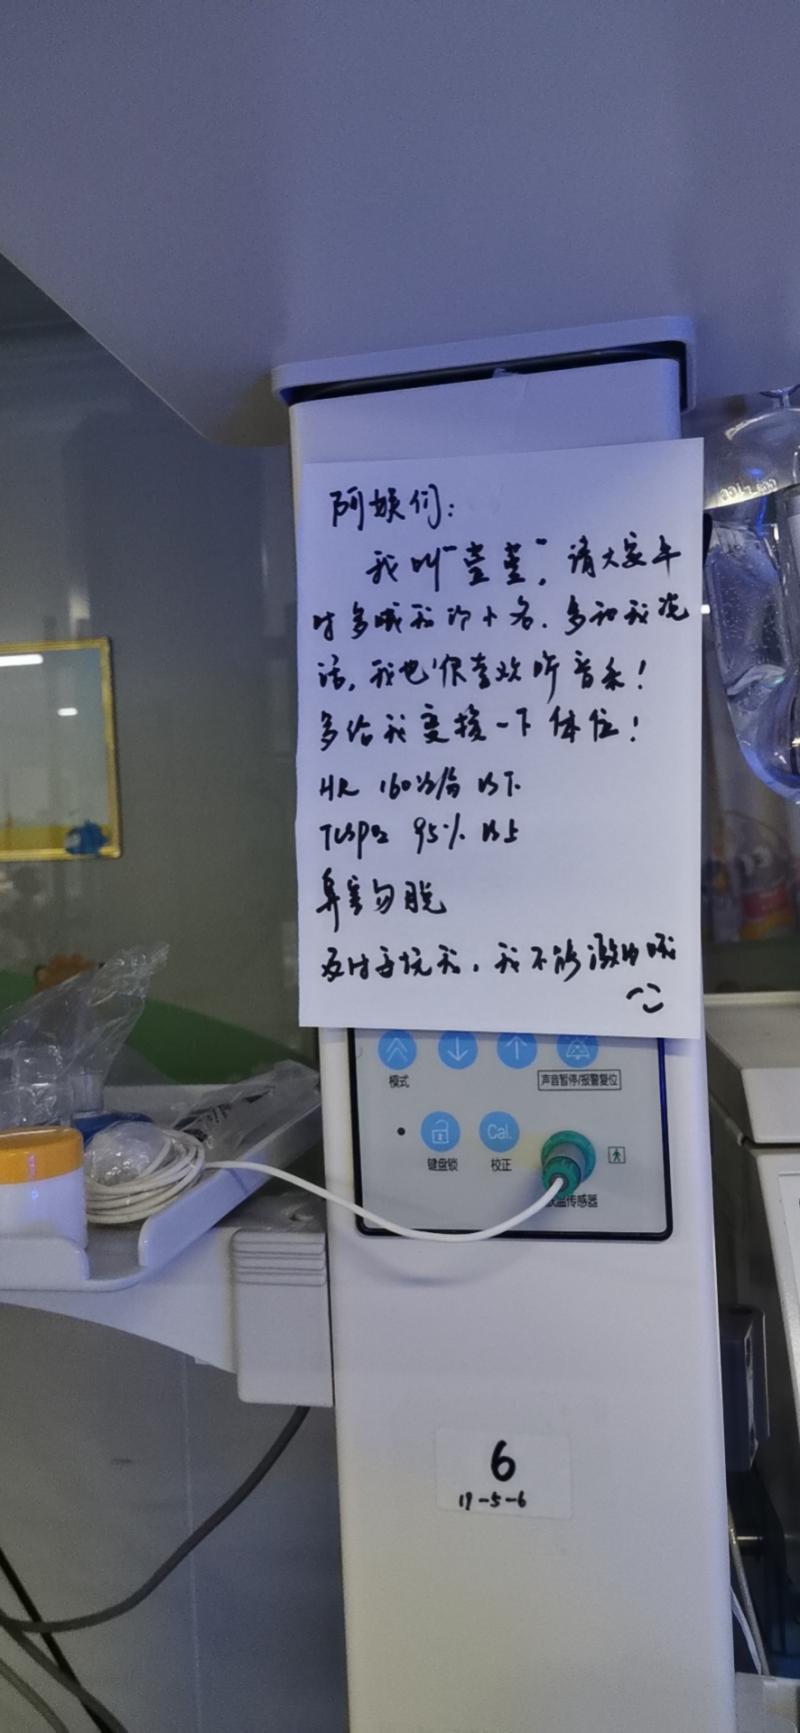 阿姨们：
我叫“壹壹”，请大家平
时多喊我的小名，多和我说
话，我也很喜欢听音乐！
多给我变换一下体位！
HR 160次/分 以下
TcSPO2 95% 以上
鼻塞勿脱
及时安抚我，我不能激动哦
模式
声音暂停/报警复位
Cal.
键盘锁
校正
传感器
6
17-5-6